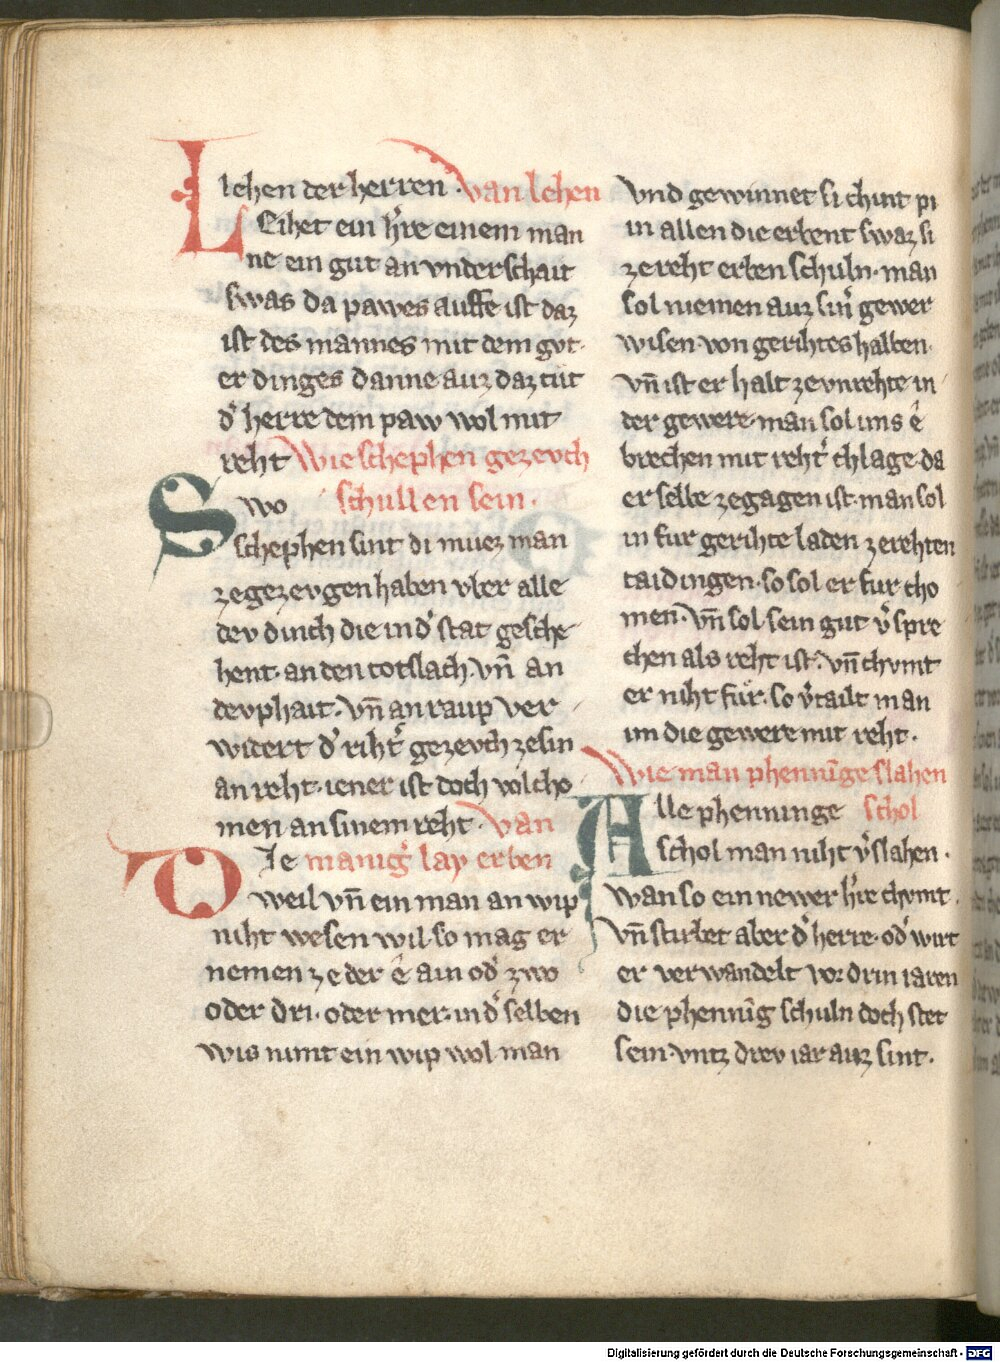 lehen der herren · van lehen
L Eihet ein h̓re einem man
ne ein gut an vnderschait
swas da pawes auffe ist daz
ist des mannes mit dem gvt·
er dinges danne auz daz tut
d̓ herre dem paw wol mit
reht Wie schephen gezevch
Swo schullen sein·
schephen sint di muez man
zegezevgen haben vber alle
dev dinch die in d̓ stat gesche
hent· an den totslach· vn̄ an
devphait· vn̄ an raup ver
widert d̓ riht̓ gezevch ze sin
an reht· iener ist doch volcho
men an sinem reht· van
DIe manig̓ lay erben
weil vn̄ ein man an wip
niht wesen wil· so mag er
nemen ze der ê ain od̓ zwo
oder dri· oder mer· in d̓ selben
wis nimt ein wip wol man
vnd gewinnet si chint pi
in allen die erbent swaz si
ze reht erben schuln· man
sol niemen auz sin̓ gewer
wisen von gerihtes halben·
vn̄ ist er halt ze vnrehte in
der gewere· man sol ims ê
brechen mit reht̓ chlage· da
er selbe zegagen ist· man sol
in fur gerihte laden ze rehten
taidingen· so sol er fur cho
men· vn̄ sol sein gut v̓spre
chen als reht ist· vn̄ chvmt
er niht fuͤr· so v̓tailt man
im die gewere mit reht·
Wie man phenni̅ge slahen
Alle phenninge schol
schol man niht v̓slahen·
wan so ein newer h̓re chvmt·
vn̄ stirbet aber d̓ herre· od̓ wirt
er verwandelt vor drin iaren
die phenni̅g schuln doch stet
sein vntz drev iar auz sint·